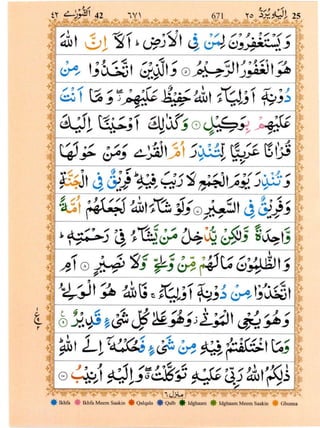 اَلشُّوْرٰی ٤٢ 42 ٦٧١ 671 اِلَيْهِ يُرَدُّ ٢٥ 25
وَيَسْتَغْفِرُوْنَ لِمَنْ فِي الْاَرْضِ ؕ اَلَاۤ اِنَّ اللّٰهَ
هُوَ الْغَفُوْرُ الرَّحِيْمُ ۝٥ وَالَّذِيْنَ اتَّخَذُوْا مِنْ
دُوْنِهٖۤ اَوْلِيَآءَ اللّٰهُ حَفِيْظٌ عَلَيْهِمْ ۖ وَمَاۤ اَنْتَ
عَلَيْهِمْ بِوَكِيْلٍ ۝٦ وَكَذٰلِكَ اَوْحَيْنَاۤ اِلَيْكَ
قُرْاٰنًا عَرَبِيًّا لِّتُنْذِرَ اُمَّ الْقُرٰى وَمَنْ حَوْلَهَا
وَتُنْذِرَ يَوْمَ الْجَمْعِ لَا رَيْبَ فِيْهِ ؕ فَرِيْقٌ فِي الْجَنَّةِ
وَفَرِيْقٌ فِي السَّعِيْرِ ۝٧ وَلَوْ شَآءَ اللّٰهُ لَجَعَلَهُمْ اُمَّةً
وَّاحِدَةً وَّلٰكِنْ يُّدْخِلُ مَنْ يَّشَآءُ فِيْ رَحْمَتِهٖ ؕ
وَالظّٰلِمُوْنَ مَا لَهُمْ مِّنْ وَّلِيٍّ وَّلَا نَصِيْرٍ ۝٨ اَمِ
اتَّخَذُوْا مِنْ دُوْنِهٖۤ اَوْلِيَآءَ ۚ فَاللّٰهُ هُوَ الْوَلِيُّ
وَهُوَ يُحْيِ الْمَوْتٰى ۫ وَهُوَ عَلٰى كُلِّ شَيْءٍ قَدِيْرٌ ۝٩
وَمَا اخْتَلَفْتُمْ فِيْهِ مِنْ شَيْءٍ فَحُكْمُهٗۤ اِلَى اللّٰهِ ؕ
ذٰلِكُمُ اللّٰهُ رَبِّيْ عَلَيْهِ تَوَكَّلْتُ ۖ وَاِلَيْهِ اُنِيْبُ ۝١٠
منزل ٦
Ikhfa Ikhfa Meem Saakin Qalqala Qalb Idghaam Idghaam Meem Saakin Ghunna